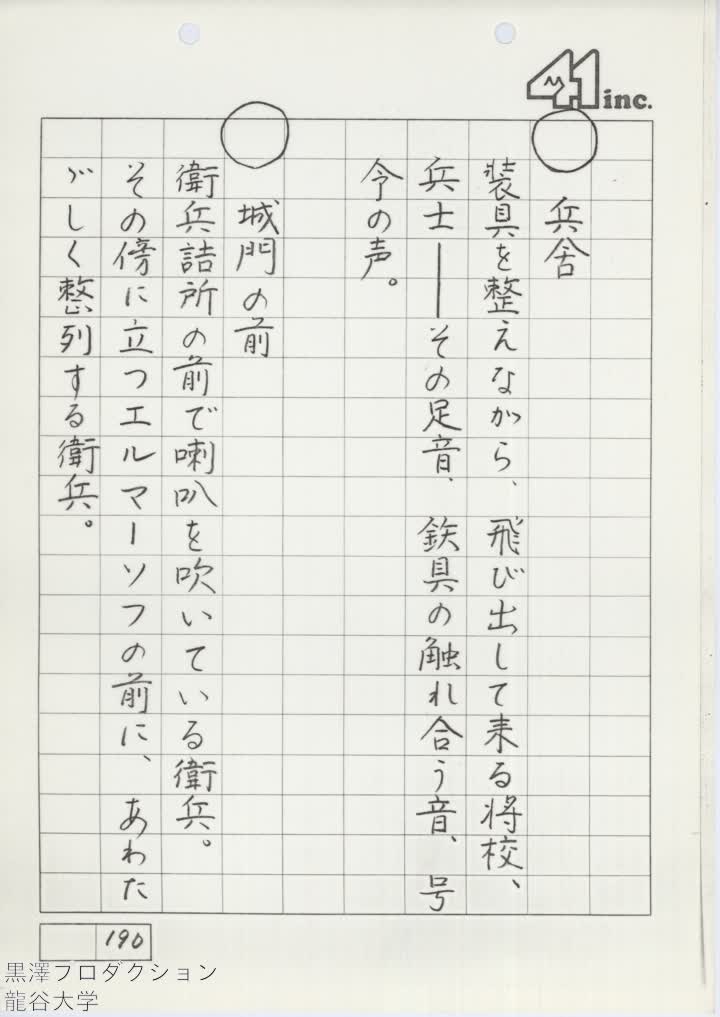 41 inc.
○ 兵舎
装具を整えながら、飛び出して来る将校、
兵士——その足音、鉄具の触れ合う音、号
令の声。
○ 城門の前
衛兵詰所の前で喇叭を吹いている衛兵。
その傍に立つエルマーソフの前に、あわた
ゞしく整列する衛兵。
190
黒澤プロダクション
龍谷大学